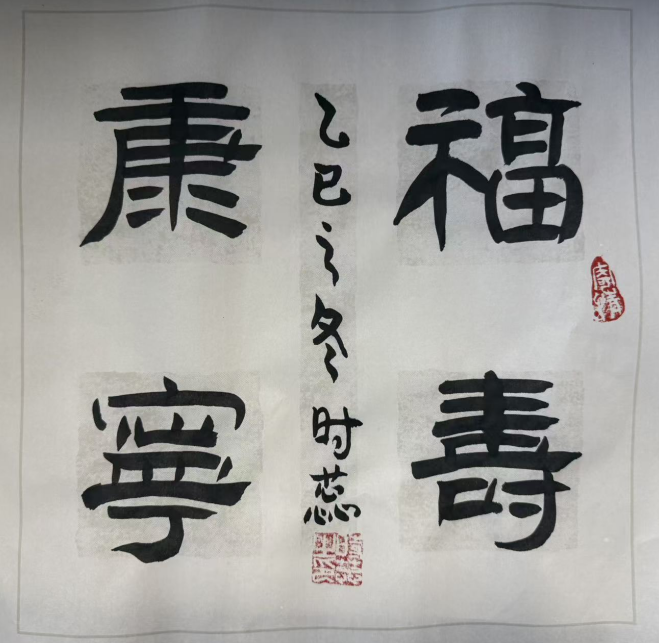 福壽
康寧
乙巳之冬时蕊